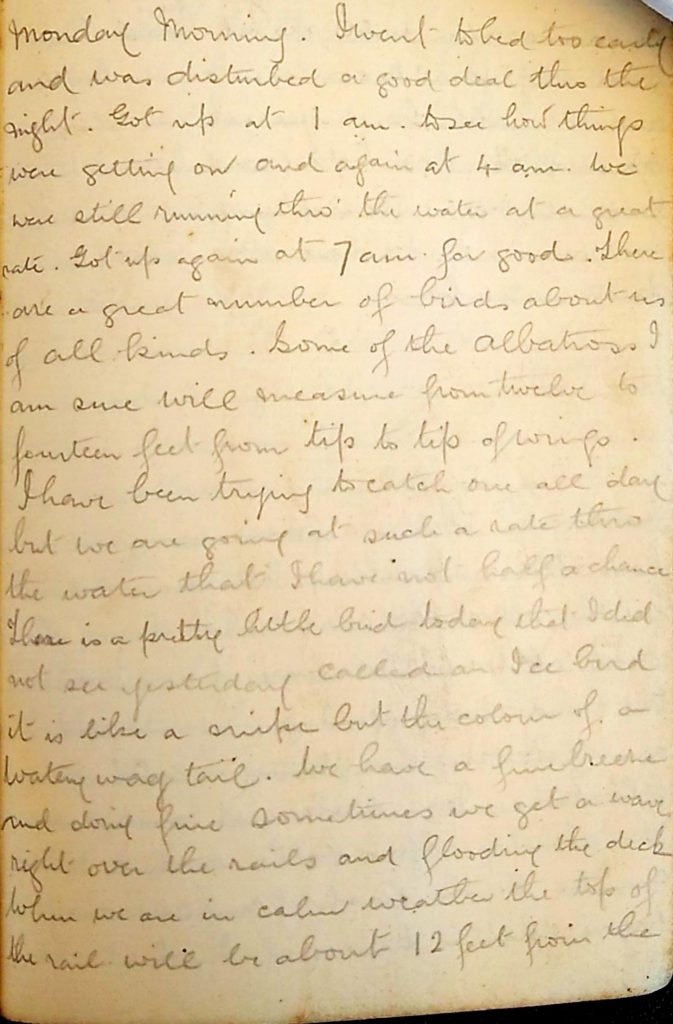 Monday Morning. I went to bed too early
and was disturbed a good deal thro the
night. Got up at 1 am. to see how things
were getting on and again at 4 am. We
were still running thro' the water at a great
rate. Got up again at 7 am. for good. There
are a great number of birds about us
of all kinds. Some of the albatross I
am sure will measure from twelve to
fourteen feet from tip to tip of wings.
I have been trying to catch one all day
but we are going at such a rate thro
the water that I have not half a chance
There is a pretty little bird today that I did
not see yesterday called an Ice bird
it is like a snipe but the colour of a
Watery wag tail. We have a fine breeze
and doing fine sometimes we get a wave
right over the rails and flooding the deck
When we are in calm weather the top of
the rail will be about 12 feet from the